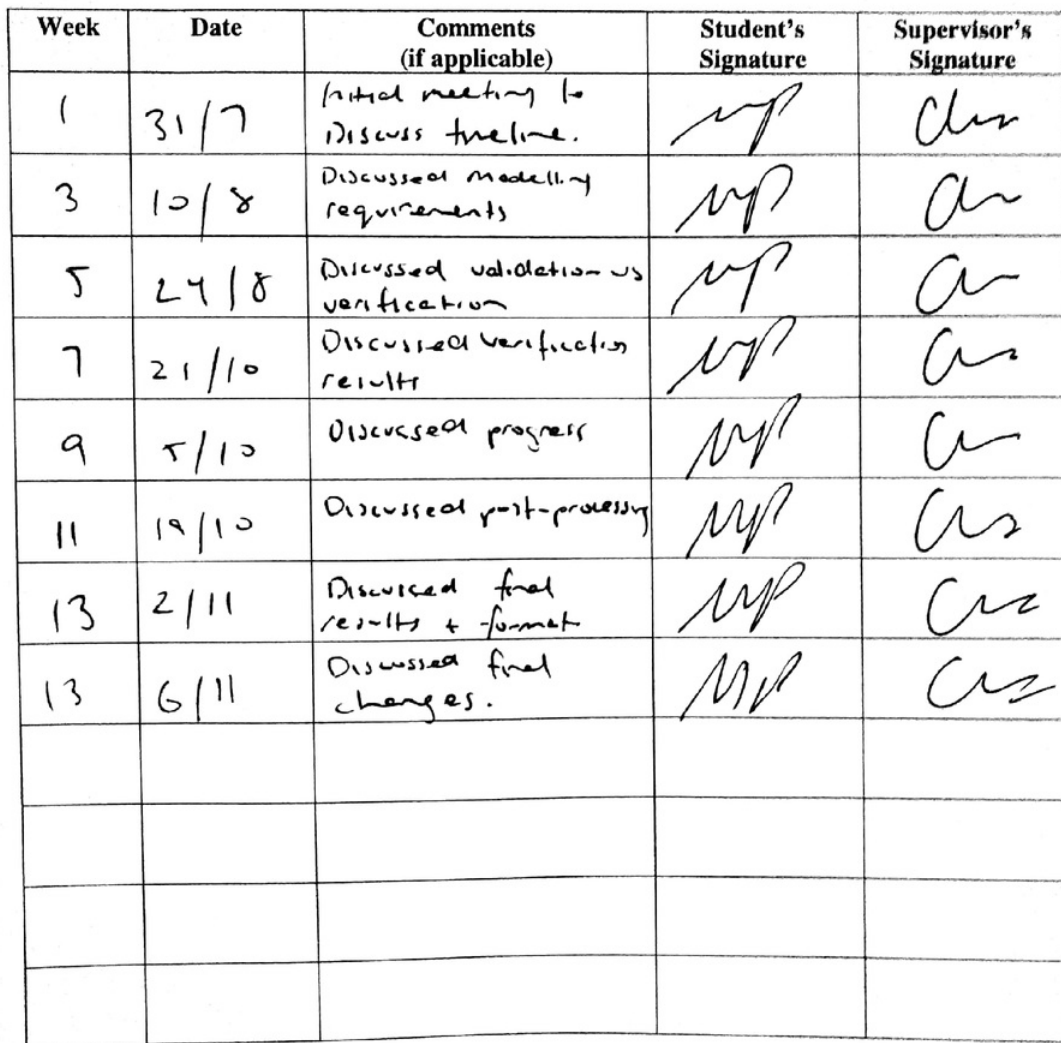 Week Date Comments Student's Supervisor's
(if applicable) Signature Signature
1 31/7 Initial meeting to
Discuss timeline.
3 10/8 Discussed modelling
requirements
5 24/8 Discussed validation vs
verification
7 21/10 Discussed verification
results
9 5/10 Discussed progress
11 19/10 Discussed post-processing
13 2/11 Discussed final
results + format
13 6/11 Discussed final
changes.